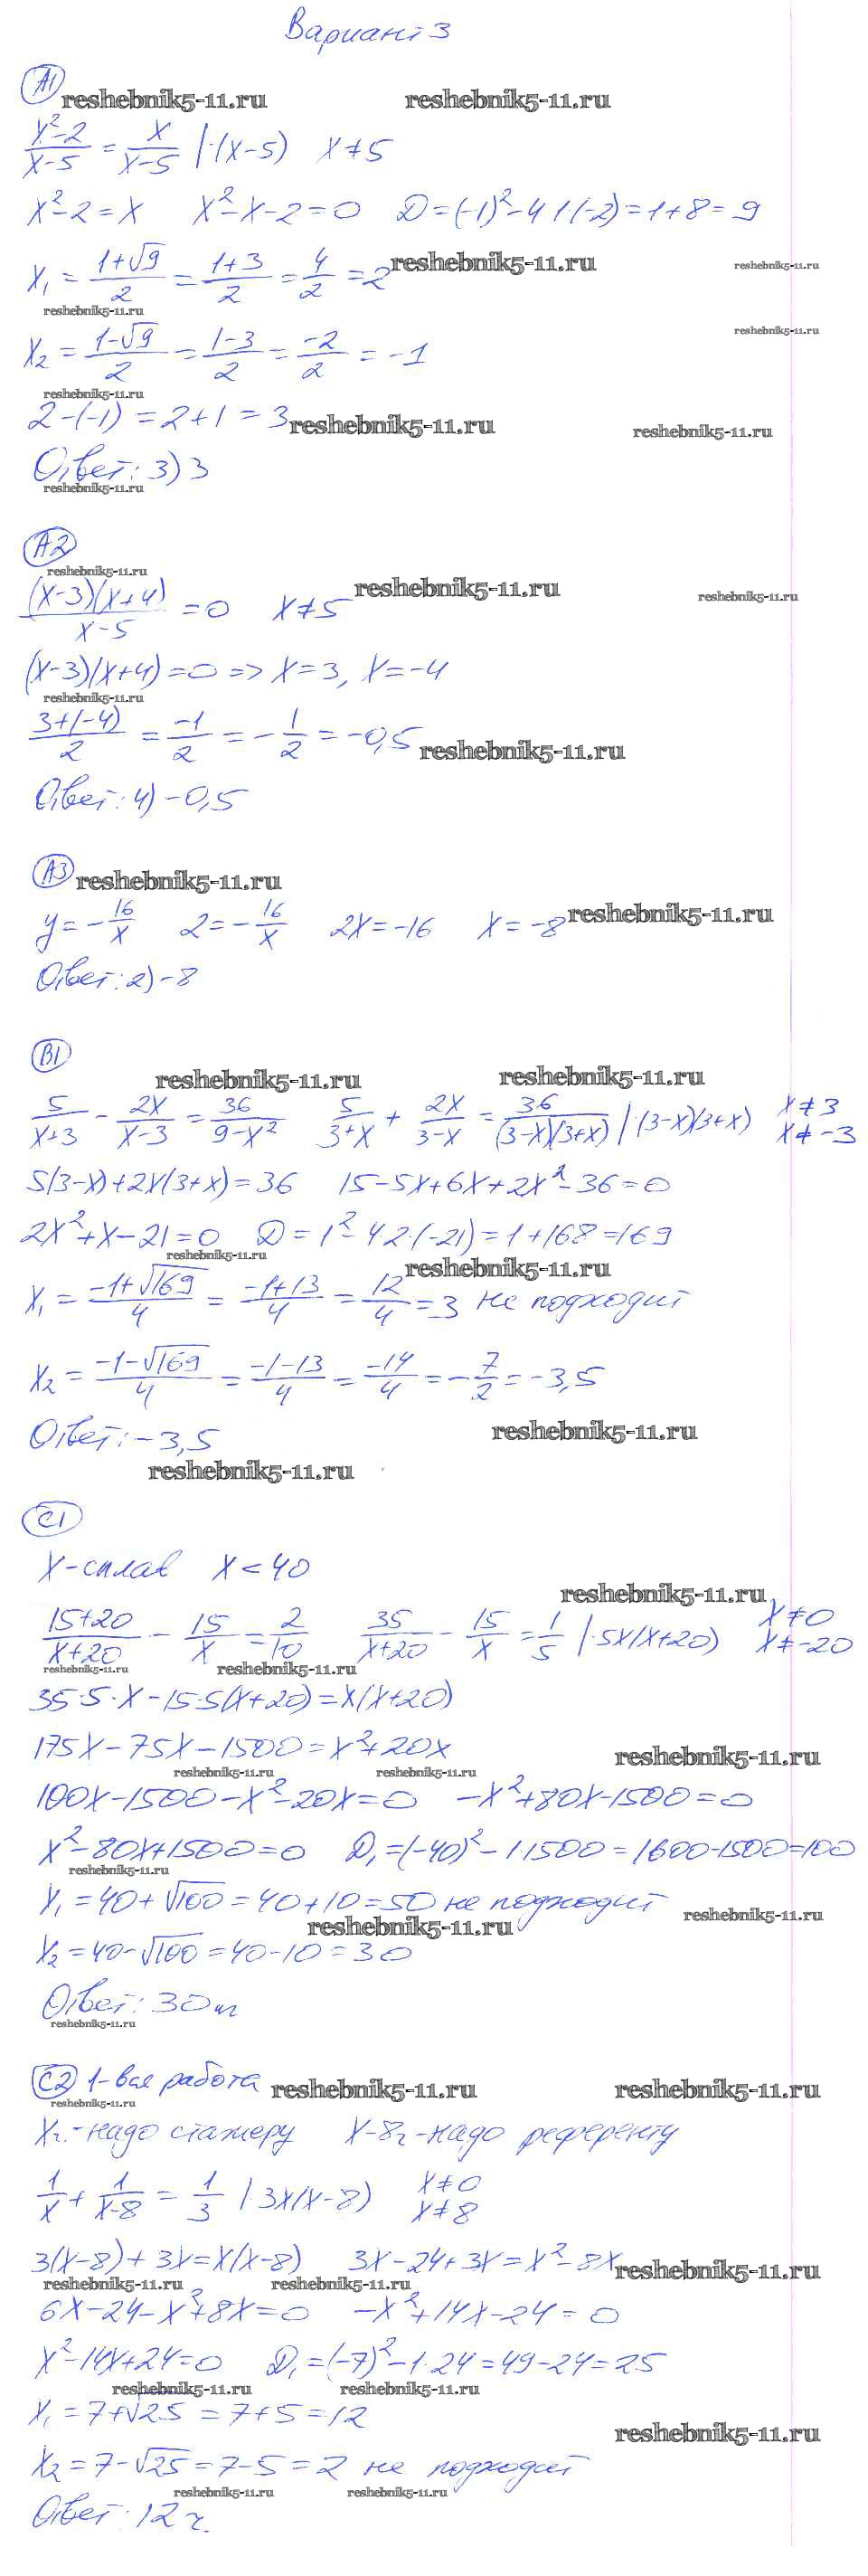 Вариант 3
А1
reshebnik5-11.ru reshebnik5-11.ru
(x²-2)/(x-5) = x/(x-5) |·(x-5) x≠5
x²-2=x x²-x-2=0 D=(-1)²-4·1·(-2)=1+8=9
x₁ = (1+√9)/2 = (1+3)/2 = 4/2 = 2 reshebnik5-11.ru reshebnik5-11.ru
reshebnik5-11.ru
x₂ = (1-√9)/2 = (1-3)/2 = -2/2 = -1 reshebnik5-11.ru
reshebnik5-11.ru
2-(-1)=2+1=3 reshebnik5-11.ru reshebnik5-11.ru
Ответ: 3) 3
reshebnik5-11.ru
А2
reshebnik5-11.ru
(x-3)(x+4)/(x-5) = 0 x≠5 reshebnik5-11.ru reshebnik5-11.ru
(x-3)(x+4)=0 => x=3, x=-4
reshebnik5-11.ru
(3+(-4))/2 = -1/2 = -1/2 = -0,5 reshebnik5-11.ru
Ответ: 4) -0,5
А3 reshebnik5-11.ru
y=-16/x 2=-16/x 2x=-16 x=-8 reshebnik5-11.ru
Ответ: 2) -8
В1
reshebnik5-11.ru reshebnik5-11.ru
5/(x+3) - 2x/(x-3) = 36/(9-x²) 5/(3+x) + 2x/(3-x) = 36/((3-x)(3+x)) |·(3-x)(3+x) x≠3 x≠-3
5(3-x)+2x(3+x)=36 15-5x+6x+2x²-36=0
2x²+x-21=0 D=1²-4·2·(-21)=1+168=169
reshebnik5-11.ru reshebnik5-11.ru
x₁ = (-1+√169)/4 = (-1+13)/4 = 12/4 = 3 не подходит
x₂ = (-1-√169)/4 = (-1-13)/4 = -14/4 = -7/2 = -3,5
Ответ: -3,5 reshebnik5-11.ru
reshebnik5-11.ru
С1
x-сплав x<40
reshebnik5-11.ru
(15+20)/(x+20) - 15/x = 2/10 35/(x+20) - 15/x = 1/5 |·5x(x+20) x≠0 x≠-20
reshebnik5-11.ru reshebnik5-11.ru
35·5·x-15·5(x+20)=x(x+20)
175x-75x-1500=x²+20x reshebnik5-11.ru
reshebnik5-11.ru reshebnik5-11.ru
100x-1500-x²-20x=0 -x²+80x-1500=0
x²-80x+1500=0 D₁=(-40)²-1·1500=1600-1500=100
reshebnik5-11.ru
x₁=40+√100=40+10=50 не подходит reshebnik5-11.ru
reshebnik5-11.ru
x₂=40-√100=40-10=30
Ответ: 30 кг
reshebnik5-11.ru
С2 1-вся работа reshebnik5-11.ru reshebnik5-11.ru
reshebnik5-11.ru
xч.-надо стажеру x-8ч-надо референту
1/x + 1/(x-8) = 1/3 |·3x(x-8) x≠0 x≠8
3(x-8)+3x=x(x-8) 3x-24+3x=x²-8x reshebnik5-11.ru
reshebnik5-11.ru reshebnik5-11.ru
6x-24-x²+8x=0 -x²+14x-24=0
x²-14x+24=0 D₁=(-7)²-1·24=49-24=25
reshebnik5-11.ru reshebnik5-11.ru
x₁=7+√25=7+5=12 reshebnik5-11.ru
x₂=7-√25=7-5=2 не подходит
reshebnik5-11.ru reshebnik5-11.ru
Ответ: 12 ч.